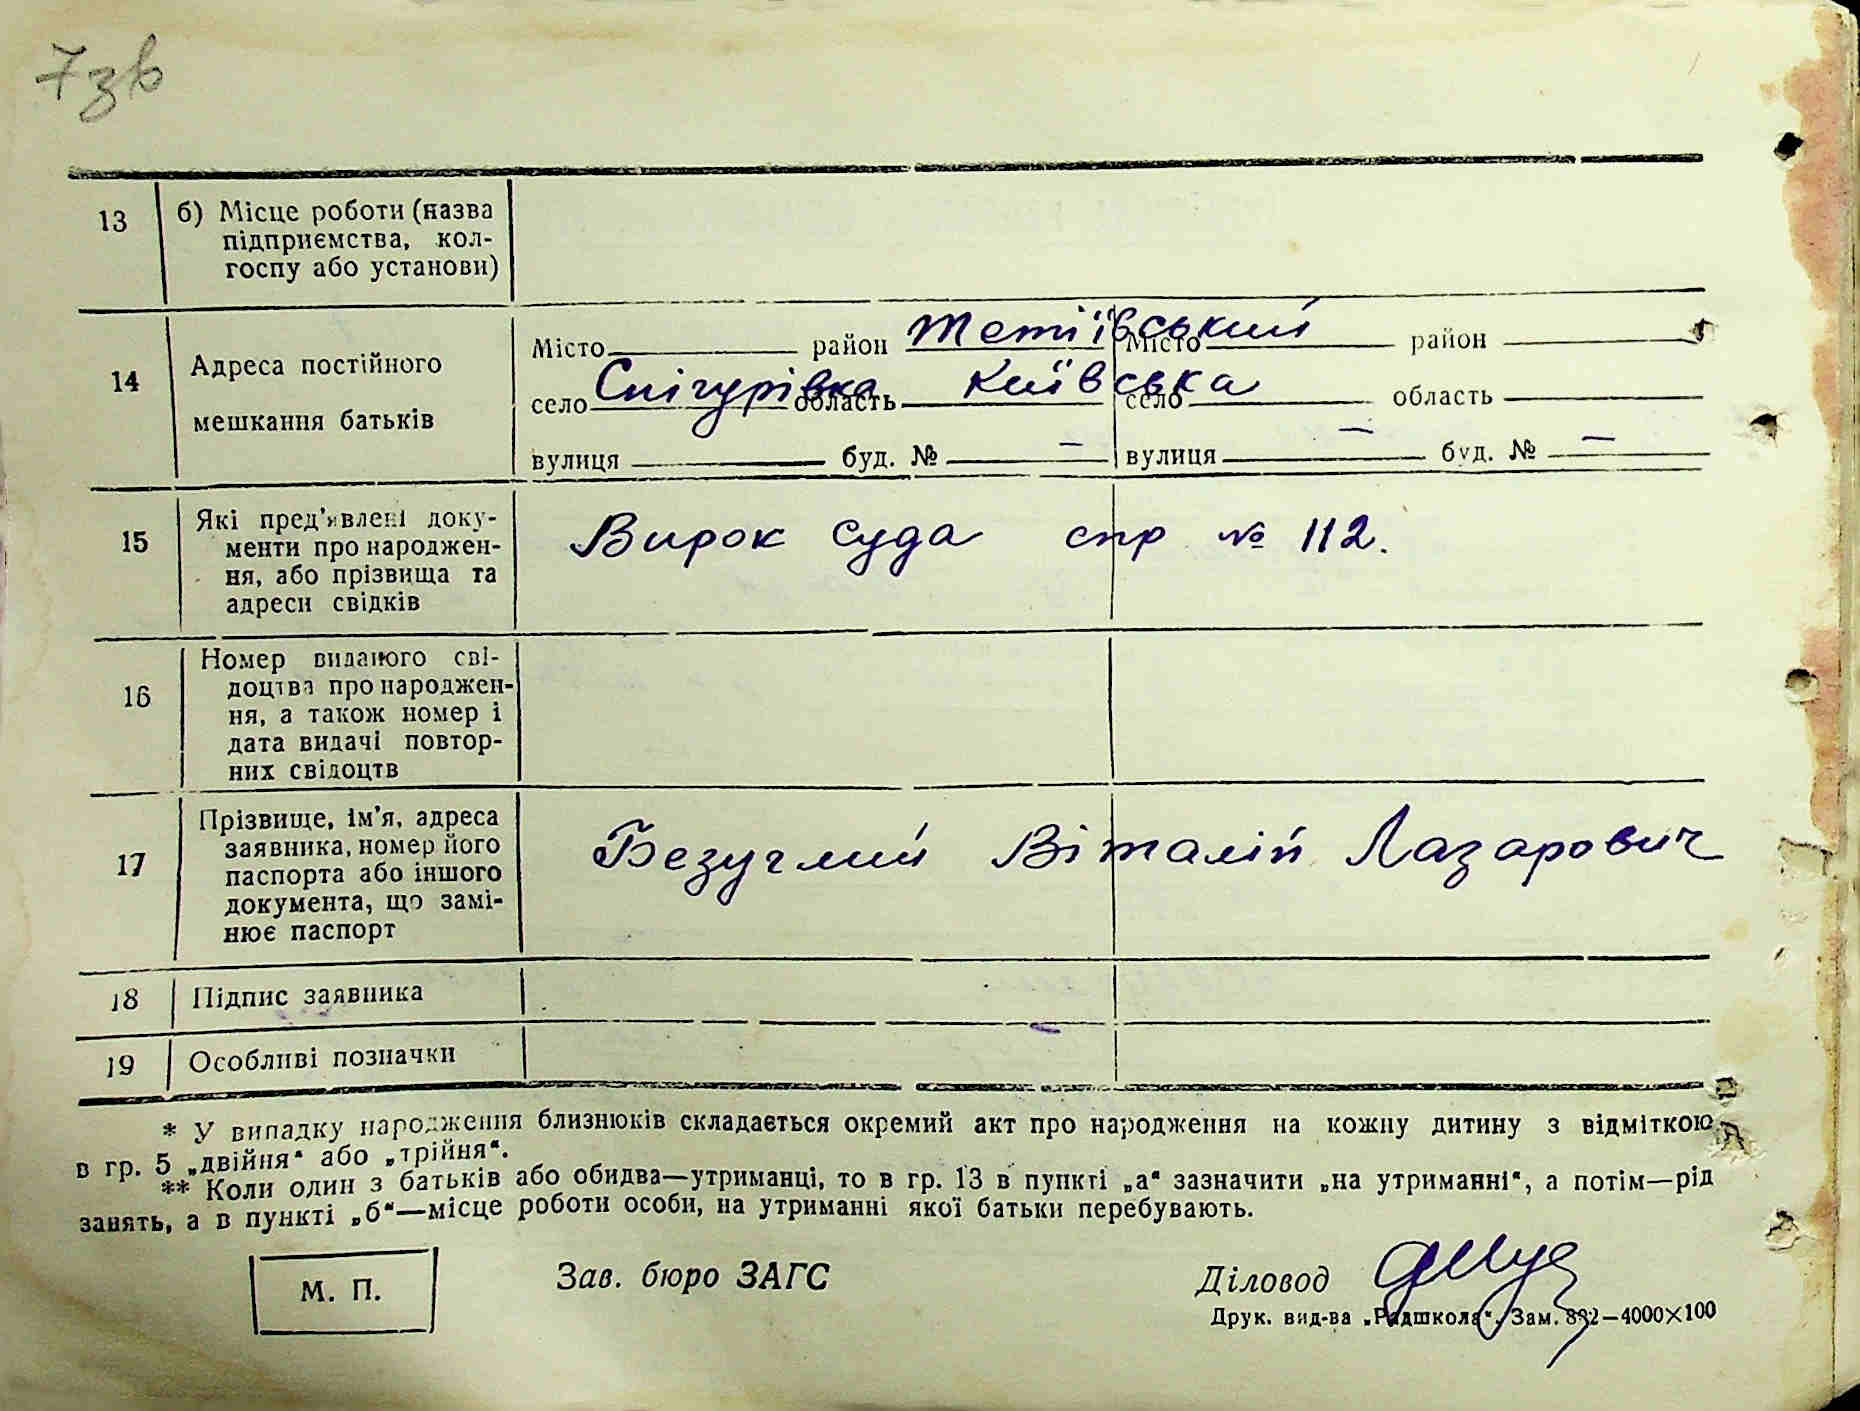 7зв
13 б) Місце роботи (назва
підприємства, кол-
госпу або установи)
14 Адреса постійного
мешкання батьків
Місто район Тетіївський Місто район
село Снігурівка область Київська село область
вулиця буд. № — вулиця — буд. № —
15 Які пред'явлені доку-
менти про народжен-
ня, або прізвища та
адреси свідків
Вирок суда спр № 112.
16 Номер виданого сві-
доцтва про народжен-
ня, а також номер і
дата видачі повтор-
них свідоцтв
17 Прізвище, ім'я, адреса
заявника, номер його
паспорта або іншого
документа, що замі-
нює паспорт
Безуглий Віталій Лазарович
18 Підпис заявника
19 Особливі позначки
* У випадку народження близнюків складається окремий акт про народження на кожну дитину з відміткою
в гр. 5 „двійня“ або „трійня“.
** Коли один з батьків або обидва—утриманці, то в гр. 13 в пункті „а“ зазначити „на утриманні“, а потім—рід
занять, а в пункті „б“—місце роботи особи, на утриманні якої батьки перебувають.
М. П. Зав. бюро ЗАГС Діловод
Друк. вид-ва „Радшкола“. Зам. 832—4000×100